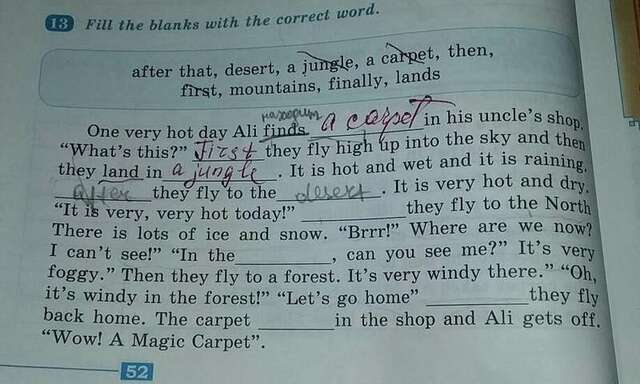 13 Fill the blanks with the correct word.
after that, desert, a jungle, a carpet, then,
first, mountains, finally, lands
находит
One very hot day Ali finds a carpet in his uncle's shop.
"What's this?" First they fly high up into the sky and then
they land in a jungle. It is hot and wet and it is raining.
after they fly to the desert. It is very hot and dry.
"It is very, very hot today!" ________ they fly to the North
There is lots of ice and snow. "Brrr!" Where are we now?
I can't see!" "In the ________, can you see me?" It's very
foggy." Then they fly to a forest. It's very windy there." "Oh,
it's windy in the forest!" "Let's go home" ________ they fly
back home. The carpet ________ in the shop and Ali gets off.
"Wow! A Magic Carpet".
52